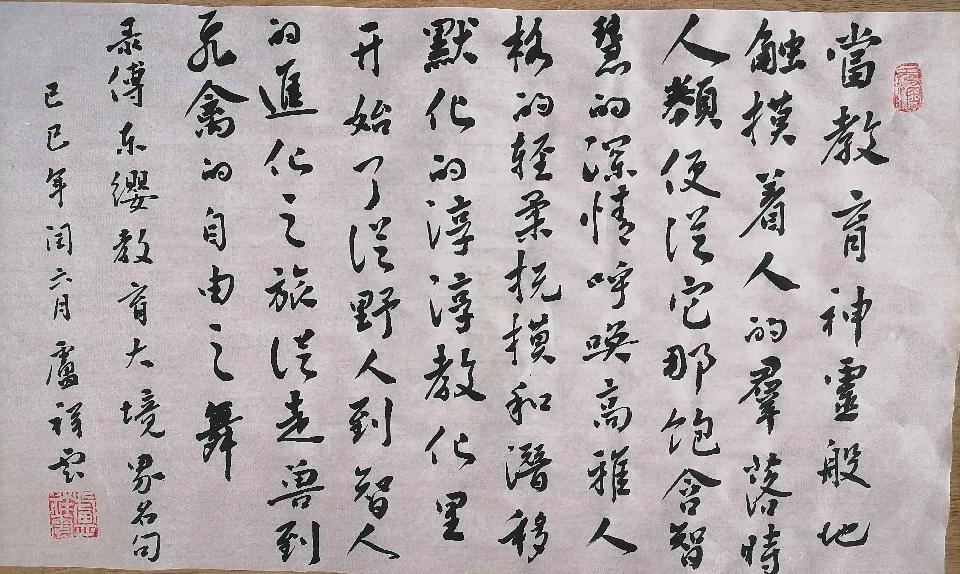 當教育神靈般地
触摸着人的羣落時
人類便從它那饱含智
慧的深情呼唤高雅人
格的轻柔抚摸和潛移
默化的淳淳教化里
开始了從野人到智人
的進化之旅從走兽到
飛禽的自由之舞
录傅东缨教育大境界名句
己巳年闰六月盧祥云